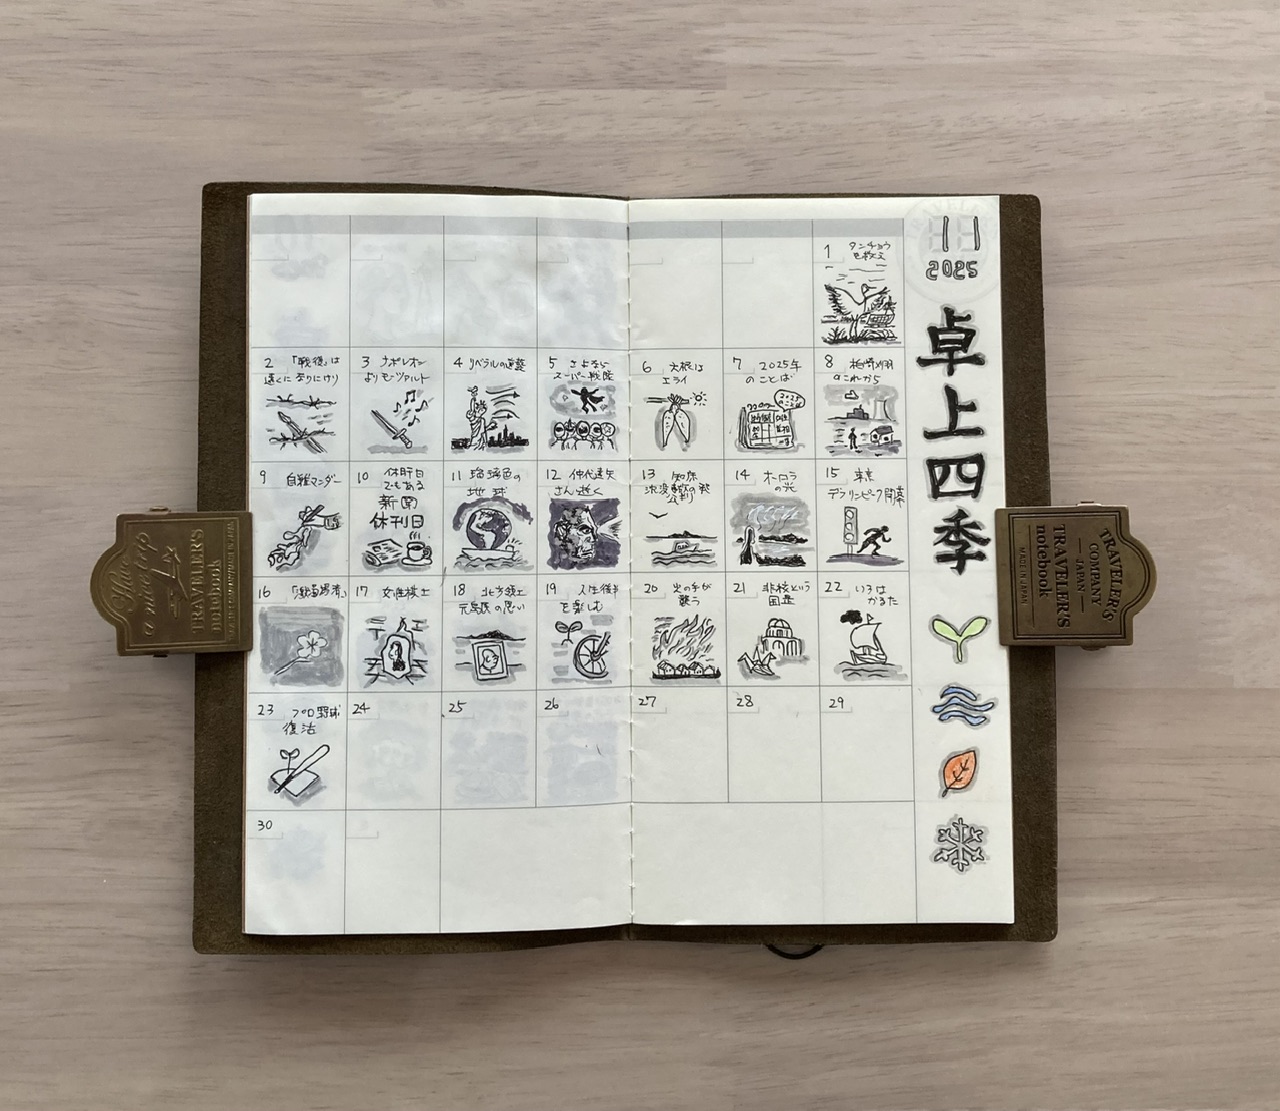 11
2025
卓上四季
1 タンチョウ
を救え
2 「戦後」は
遠くになりにけり
3 ナポレオン
よりモーツァルト
4 リベラルの
5 さよなら
スーパー戦隊
6 大根は
エライ
7 2025年
のことば
8 柏崎刈羽
のこれから
9 自転マンダー
10 休肝日
でもある
新聞
休刊日
11 瑠璃色の
地球
12 仲代達矢
さん逝く
13 知床
公判
14 オーロラ
の光
15 東京
デフリンピック開幕
16
17 女性棋士
18 北方領土
元島民の思い
19 人生後半
を楽しむ
20 火の手が
襲う
21 非核という
国是
22 いろは
かるた
23 プロ野球
復活
24
25
26
27
28
29
30
TRAVELER'S
notebook
TRAVELER'S
COMPANY
JAPAN
TRAVELER'S
notebook
MADE IN JAPAN